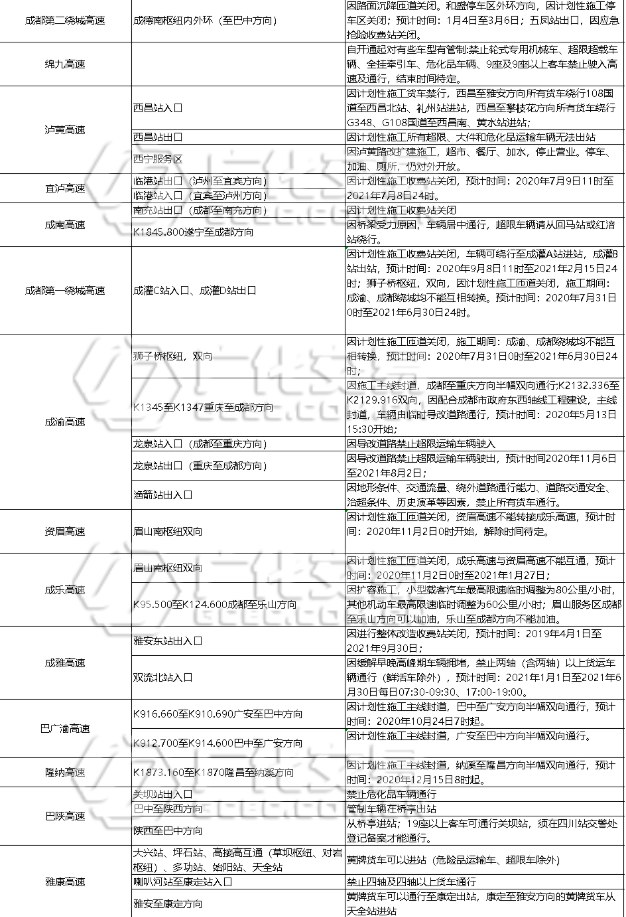 成都第二绕城高速
成德南枢纽内外环（至巴中方向）
因路面沉降匝道关闭。和盛停车区外环方向，因计划性施工停
车区关闭；预计时间：1月4日至3月6日；五凤站出口，因应急
抢险收费站关闭。
绵九高速
自开通起对有些车型有管制:禁止轮式专用机械车、超限超载车
辆、全挂牵引车、危化品车辆、9座及9座以上客车禁止驶入高
速及通行，结束时间待定。
泸黄高速
西昌站入口
因计划性施工货车禁行，西昌至雅安方向所有货车绕行108国
道至西昌北站、礼州站进站，西昌至攀枝花方向所有货车绕行
G348、G108国道至西昌南、黄水站进站；
西昌站出口
因计划性施工所有超限、大件和危化品运输车辆无法出站
西宁服务区
因泸黄路改扩建施工，超市、餐厅、加水，停止营业。停车、
加油、厕所，仍对外开放。
宜泸高速
临港站出口（泸州至宜宾方向）
临港站入口（宜宾至泸州方向）
因计划性施工收费站关闭，预计时间：2020年7月9日11时至
2021年7月8日24时。
成南高速
南充站出口（成都至南充方向）
因计划性施工收费站关闭
K1845.800遂宁至成都方向
因桥梁受力原因，车辆居中通行，超限车辆请从回马站或红涪
站绕行。
成都第一绕城高速
成灌C站入口、成灌D站出口
因计划性施工收费站关闭，车辆可绕行至成灌A站进站，成灌B
站出站，预计时间：2020年9月8日11时至2021年2月15日24
时；狮子桥枢纽，双向，因计划性施工匝道关闭，施工期间：
成渝、成都绕城均不能互相转换。预计时间：2020年7月31日
0时至2021年6月30日24时。
成渝高速
狮子桥枢纽，双向
因计划性施工匝道关闭，施工期间：成渝、成都绕城均不能互
相转换，预计时间：2020年7月31日0时至2021年6月30日24
时；
K1345至K1347重庆至成都方向
因施工主线封道，成都至重庆方向半幅双向通行;K2132.336至
K2129.916双向，因配合成都市政府东西轴线工程建设，主线
封道，车辆由临时导改道路通行，预计时间：2020年5月13日
15:30开始；
龙泉站入口（成都至重庆方向）
因导改道路禁止超限运输车辆驶入
龙泉站出口（重庆至成都方向）
因导改道路禁止超限运输车辆驶出，预计时间2020年11月6日
至2021年8月2日；
渔箭站出入口
因地形条件、交通流量、绕外道路通行能力、道路交通安全、
治超条件、历史沿革等因素，禁止所有货车通行。
资眉高速
眉山南枢纽双向
因计划性施工匝道关闭，资眉高速不能转接成乐高速，预计时
间：2020年11月2日0时开始，解除时间待定。
成乐高速
眉山南枢纽双向
因计划性施工匝道关闭，成乐高速与资眉高速不能互通，预计
时间：2020年11月2日0时至2021年1月27日；
K95.500至K124.600成都至乐山方向
因扩容施工，小型载客汽车最高限速临时调整为80公里/小时，
其他机动车最高限速临时调整为60公里/小时；眉山服务区成都
至乐山方向可以加油，乐山至成都方向不能加油。
成雅高速
雅安东站出入口
因进行整体改造收费站关闭，预计时间：2019年4月1日至
2021年9月30日；
双流北站入口
因缓解早晚高峰期车辆拥堵，禁止两轴（含两轴）以上货运车
辆通行（鲜活车除外），预计时间：2021年1月1日至2021年6
月30日每日07:30-09:30、17:00-19:00。
巴广渝高速
K916.660至K910.690广安至巴中方向
因计划性施工主线封道，巴中至广安方向半幅双向通行，预计
时间：2020年10月24日7时起。
K912.700至K914.600巴中至广安方向
因计划性施工主线封道，广安至巴中方向半幅双向通行。
隆纳高速
K1873.160至K1870隆昌至纳溪方向
因计划性施工主线封道，纳溪至隆昌方向半幅双向通行，预计
时间：2020年12月15日8时起。
巴陕高速
关坝站出入口
禁止危化品车辆通行
巴中至陕西方向
管制车辆在桥亭出站
陕西至巴中方向
从桥亭进站；19座以上客车可通行关坝站，须在四川站交警处
登记备案才能通行。
雅康高速
大兴站、坪石站、高接高互通（草坝枢纽、对岩
枢纽）、多功站、始阳站、天全站
黄牌货车可以进站（危险品运输车、超限车除外）
喇叭河站至康定站入口
禁止四轴及四轴以上货车通行
雅安至康定方向
黄牌货车可以通行至康定出站，康定至雅安方向的黄牌货车从
天全站进站